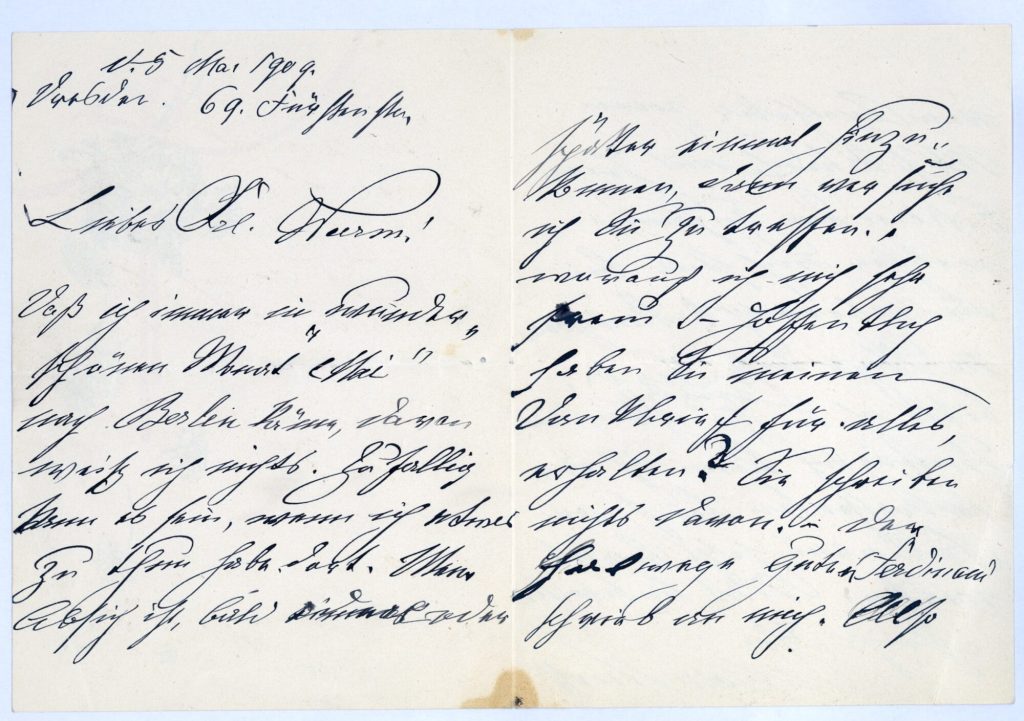 d. 5 Mai 1909.
Dresden. 69. Fürstenstr.
Liebes Frl.
Daß ich immer im wunder„
schönen Monat „Mai“
nach Berlin käme, davon
weiß ich nichts. Zufällig
kann es sein, wenn ich etwas
zu thun habe dort. Meine
Absicht ist, bald einmal oder
später einmal hinzu„
kommen, dann versuche
ich Sie zu treffen.
worauf ich mich sehr
freue – Hoffentlich
haben Sie meinen
Dankbrief für alles,
erhalten? Sie schreiben
nichts davon. – Der
gute Ferdinand
schrieb an mich. Also